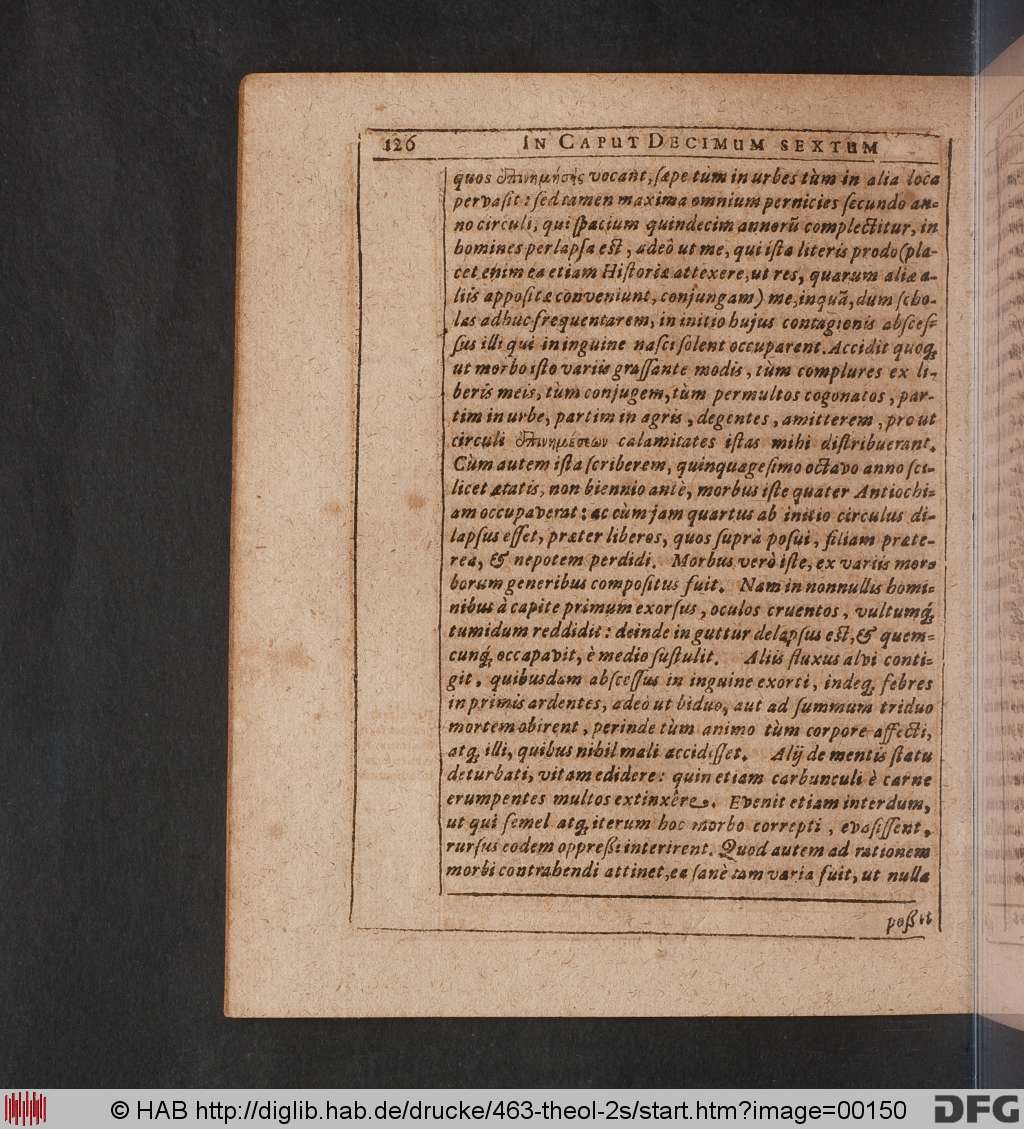 126 IN CAPUT DECIMUM SEXTUM
quos ἐπινεμήσεις vocant, ſæpe tùm in urbes tùm in alia loca
pervaſit: ſed tamen maxima omnium pernicies ſecundo an-
no circuli, qui ſpacium quindecim annorū complectitur, in
homines perlapſa eſt, adeò ut me, qui iſta literis prodo (pla-
cet enim ea etiam Hiſtoriæ attexere, ut res, quarum aliæ a-
liis appoſitæ conveniunt, conjungam) me, inquā, dum ſcho-
las adhuc frequentarem, in initio hujus contagionis abſceſ-
ſus illi qui in inguine naſci ſolent occuparent. Accidit quoq;
ut morbo iſto variis graſſante modis, tùm complures ex li-
beris meis, tùm conjugem, tùm permultos cogonatos, par-
tim in urbe, partim in agris, degentes, amitterem, pro ut
circuli ἐπινεμήσεων calamitates iſtas mihi diſtribuerant.
Cùm autem iſta ſcriberem, quinquageſimo octavo anno ſci-
licet ætatis, non biennio antè, morbus iſte quater Antiochi-
am occupaverat: ac cùm jam quartus ab initio circulus di-
lapſus eſſet, præter liberos, quos ſuprà poſui, filiam præte-
rea, & nepotem perdidi. Morbus verò iſte, ex variis mor-
borum generibus compoſitus fuit. Nam in nonnullis homi-
nibus à capite primum exorſus, oculos cruentos, vultumq́;
tumidum reddidit: deinde in guttur delapſus eſt, & quem-
cunq́; occapavit, è medio ſuſtulit. Aliis fluxus alvi conti-
git, quibusdam abſceſſus in inguine exorti, indeq; febres
in primis ardentes, adeò ut biduo, aut ad ſummum triduo
mortem obirent, perinde tùm animo tùm corpore affecti,
atq; illi, quibus nihil mali accidiſſet. Alij de mentis ſtatu
deturbati, vitam edidere: quin etiam carbunculi è carne
erumpentes multos extinxêre. Evenit etiam interdum,
ut qui ſemel atq; iterum hoc morbo correpti, evaſiſſent,
rurſus eodem oppreßi interirent. Quod autem ad rationem
morbi contrahendi attinet, ea ſanè tam varia fuit, ut nulla
poßit
© HAB http://diglib.hab.de/drucke/463-theol-2s/start.htm?image=00150
DFG